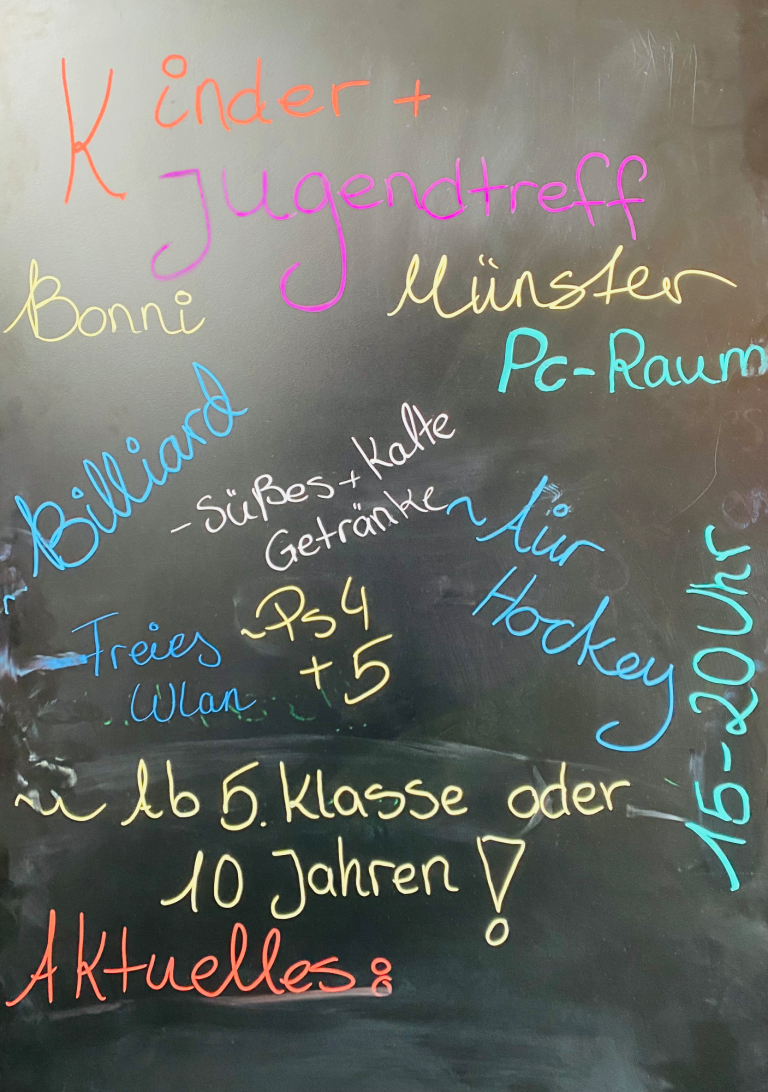 Kinder +
Jugendtreff
Bonni Münster
Pc-Raum
Billiard
- Süßes + Kalte
Getränke
~ Air
Hockey
15-20 Uhr
- Freies
Wlan
~ Ps4
+ 5
~ Ab 5. Klasse oder
10 Jahren!
Aktuelles: